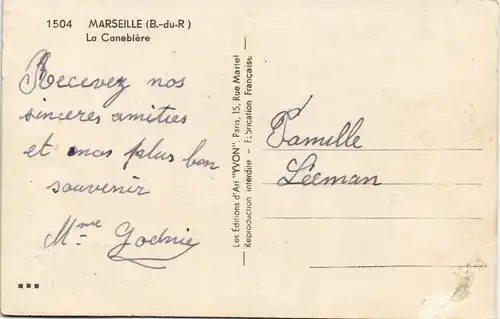 1504 MARSEILLE (B.-du-R)
La Canebière
Recevez nos
sinceres amities
et nos plus bon
souvenir
Mme
Les Editions d'Art "YVON", Paris, 15, Rue Martel
Reproduction interdite - Fabrication Française
Famille
Leeman